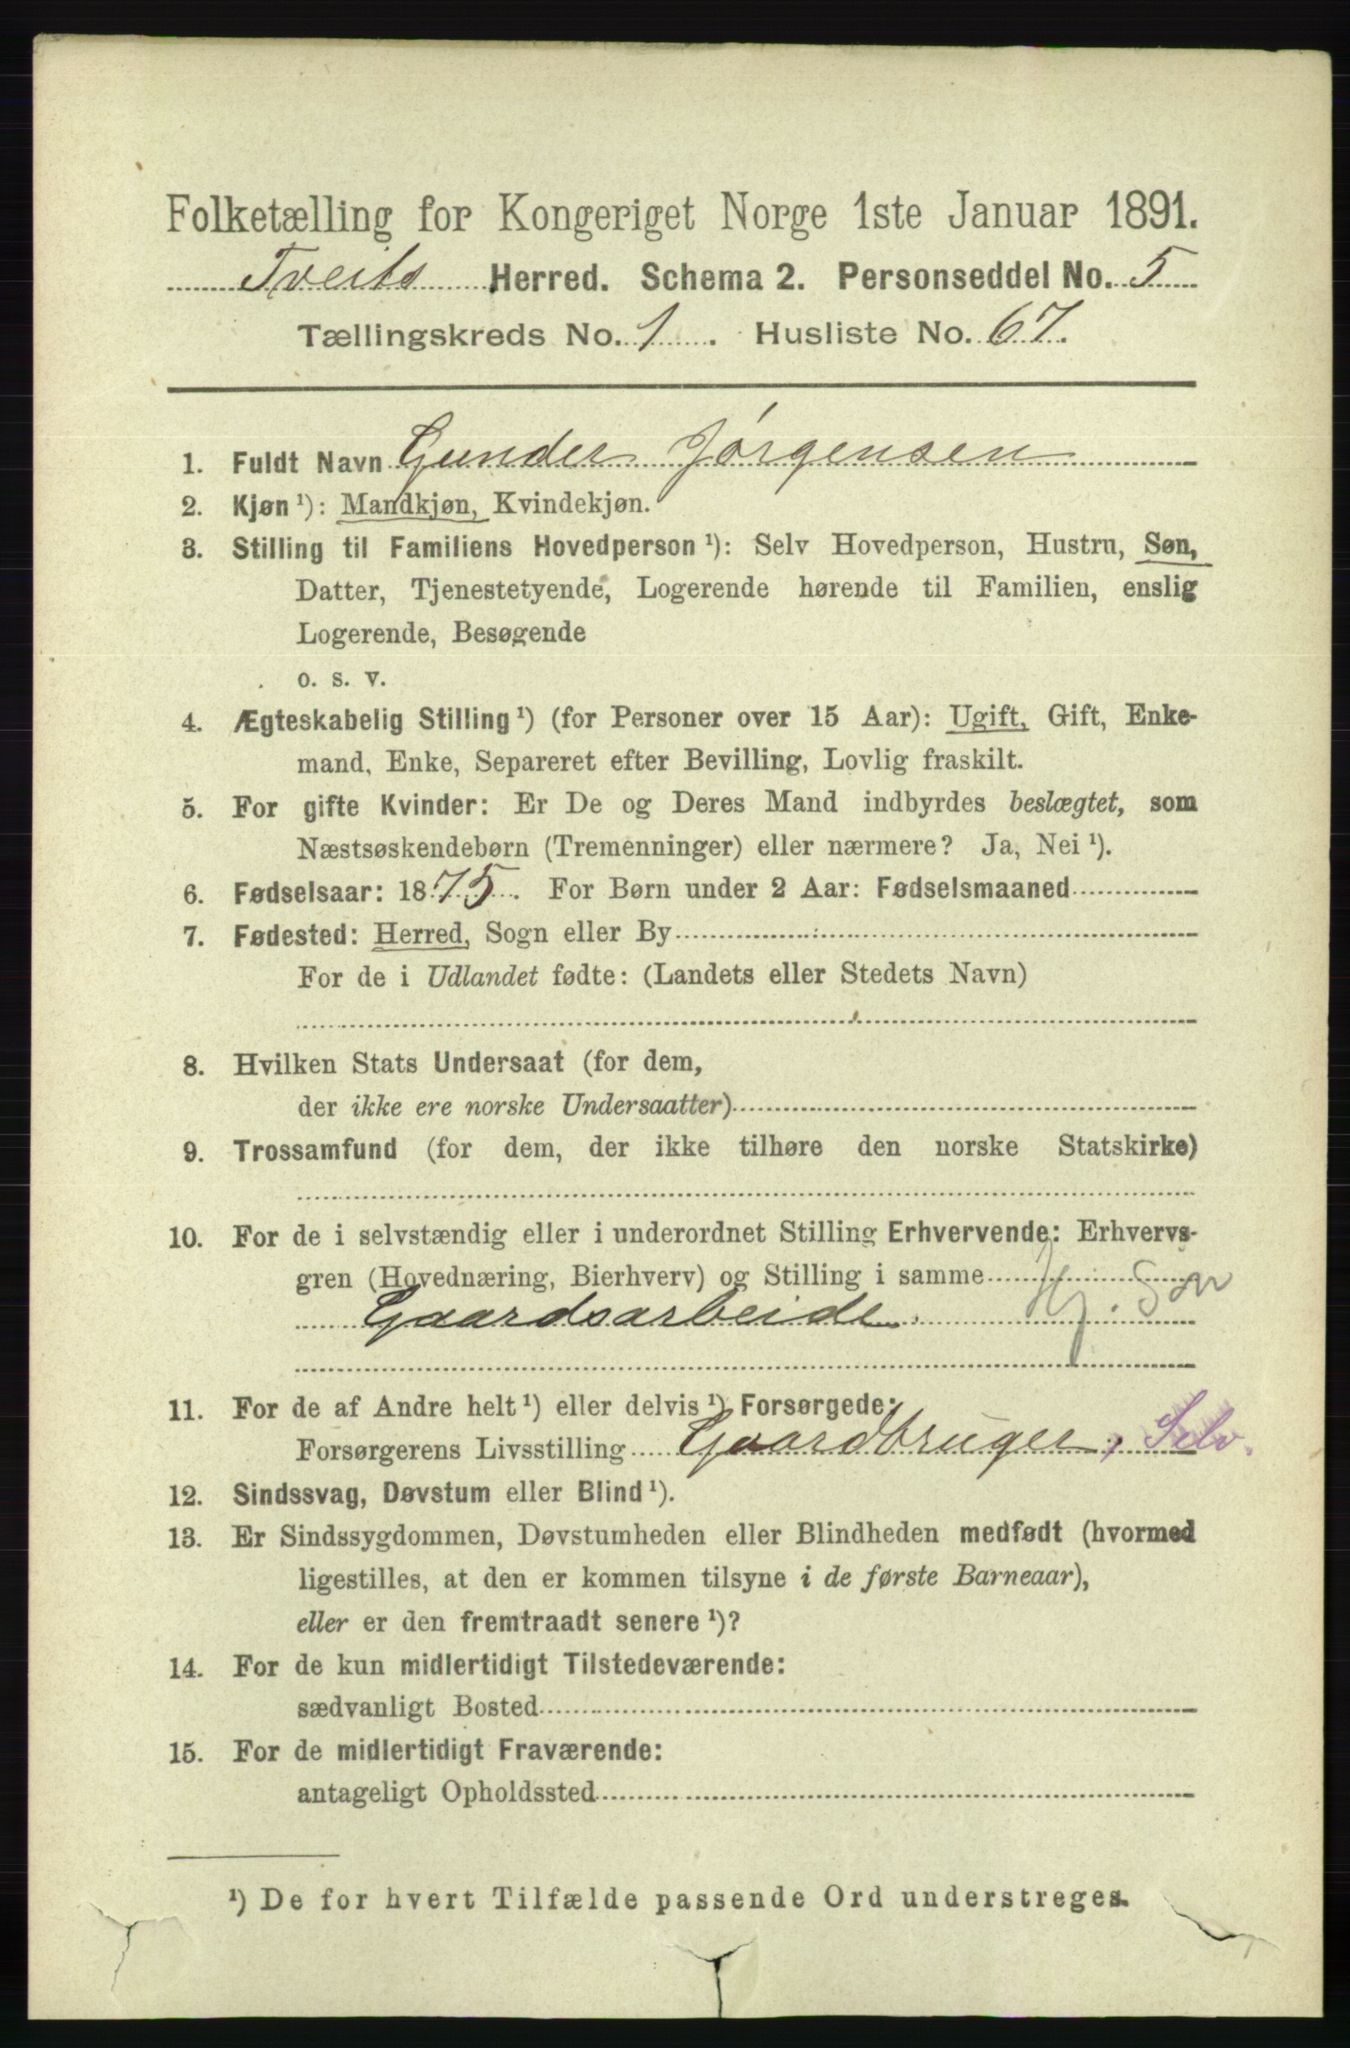 Folketælling for Kongeriget Norge 1ste Januar 1891.
Tveits Herred. Schema 2. Personseddel No. 5
Tællingskreds No. 1. Husliste No. 67.
1. Fuldt Navn Gunder Jørgensen
2. Kjøn¹): Mandkjøn, Kvindekjøn.
3. Stilling til Familiens Hovedperson¹): Selv Hovedperson, Hustru, Søn,
Datter, Tjenestetyende, Logerende hørende til Familien, enslig
Logerende, Besøgende
o. s. v.
4. Ægteskabelig Stilling¹) (for Personer over 15 Aar): Ugift, Gift, Enke-
mand, Enke, Separeret efter Bevilling, Lovlig fraskilt.
5. For gifte Kvinder: Er De og Deres Mand indbyrdes beslægtet, som
Næstsøskendebørn (Tremenninger) eller nærmere? Ja, Nei¹).
6. Fødselsaar: 1875. For Børn under 2 Aar: Fødselsmaaned
7. Fødested: Herred, Sogn eller By
For de i Udlandet fødte: (Landets eller Stedets Navn)
8. Hvilken Stats Undersaat (for dem,
der ikke ere norske Undersaatter)
9. Trossamfund (for dem, der ikke tilhøre den norske Statskirke)
10. For de i selvstændig eller i underordnet Stilling Erhvervende: Erhvervs-
gren (Hovednæring, Bierhverv) og Stilling i samme
Gaardsarbeide. Hj. Søn
11. For de af Andre helt¹) eller delvis¹) Forsørgede:
Forsørgerens Livsstilling Gaardbruger, Selv.
12. Sindssvag, Døvstum eller Blind¹).
13. Er Sindssygdommen, Døvstumheden eller Blindheden medfødt (hvormed
ligestilles, at den er kommen tilsyne i de første Barneaar),
eller er den fremtraadt senere¹)?
14. For de kun midlertidigt Tilstedeværende:
sædvanligt Bosted
15. For de midlertidigt Fraværende:
antageligt Opholdssted
¹) De for hvert Tilfælde passende Ord understreges.